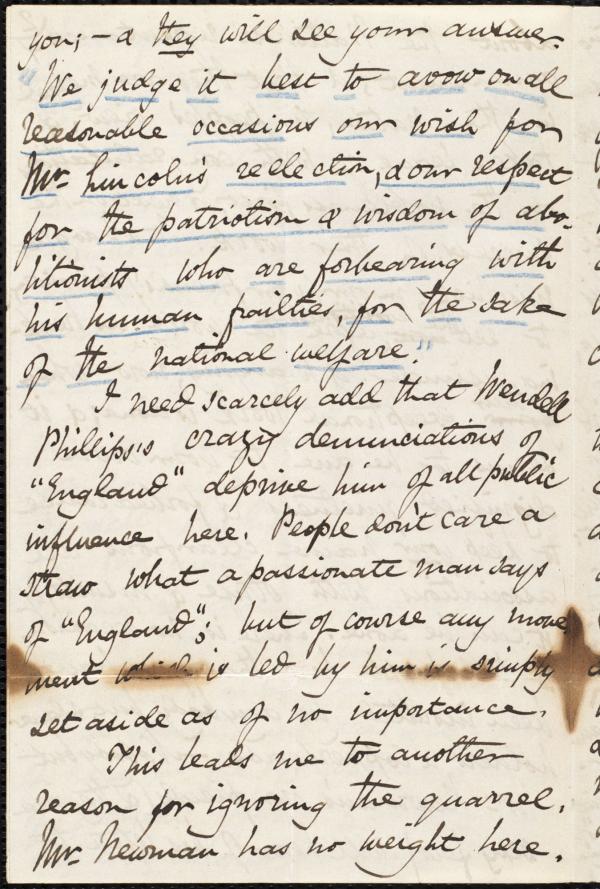 you; – & they will see your answer.
We judge it best to avow on all
reasonable occasions our wish for
Mr. Lincoln's reelection, & our respect
for the patriotism & wisdom of abo-
litionists who are forbearing with
his human frailties, for the sake
of the national welfare."
I need scarcely add that Wendell
Phillips's crazy denunciations of
"England" deprive him of all public
influence here. People don't care a
straw what a passionate man says
of "England"; but of course any move-
ment which is led by him is simply
set aside as of no importance.
This leads me to another
reason for ignoring the quarrel.
Mr. Newman has no weight here.